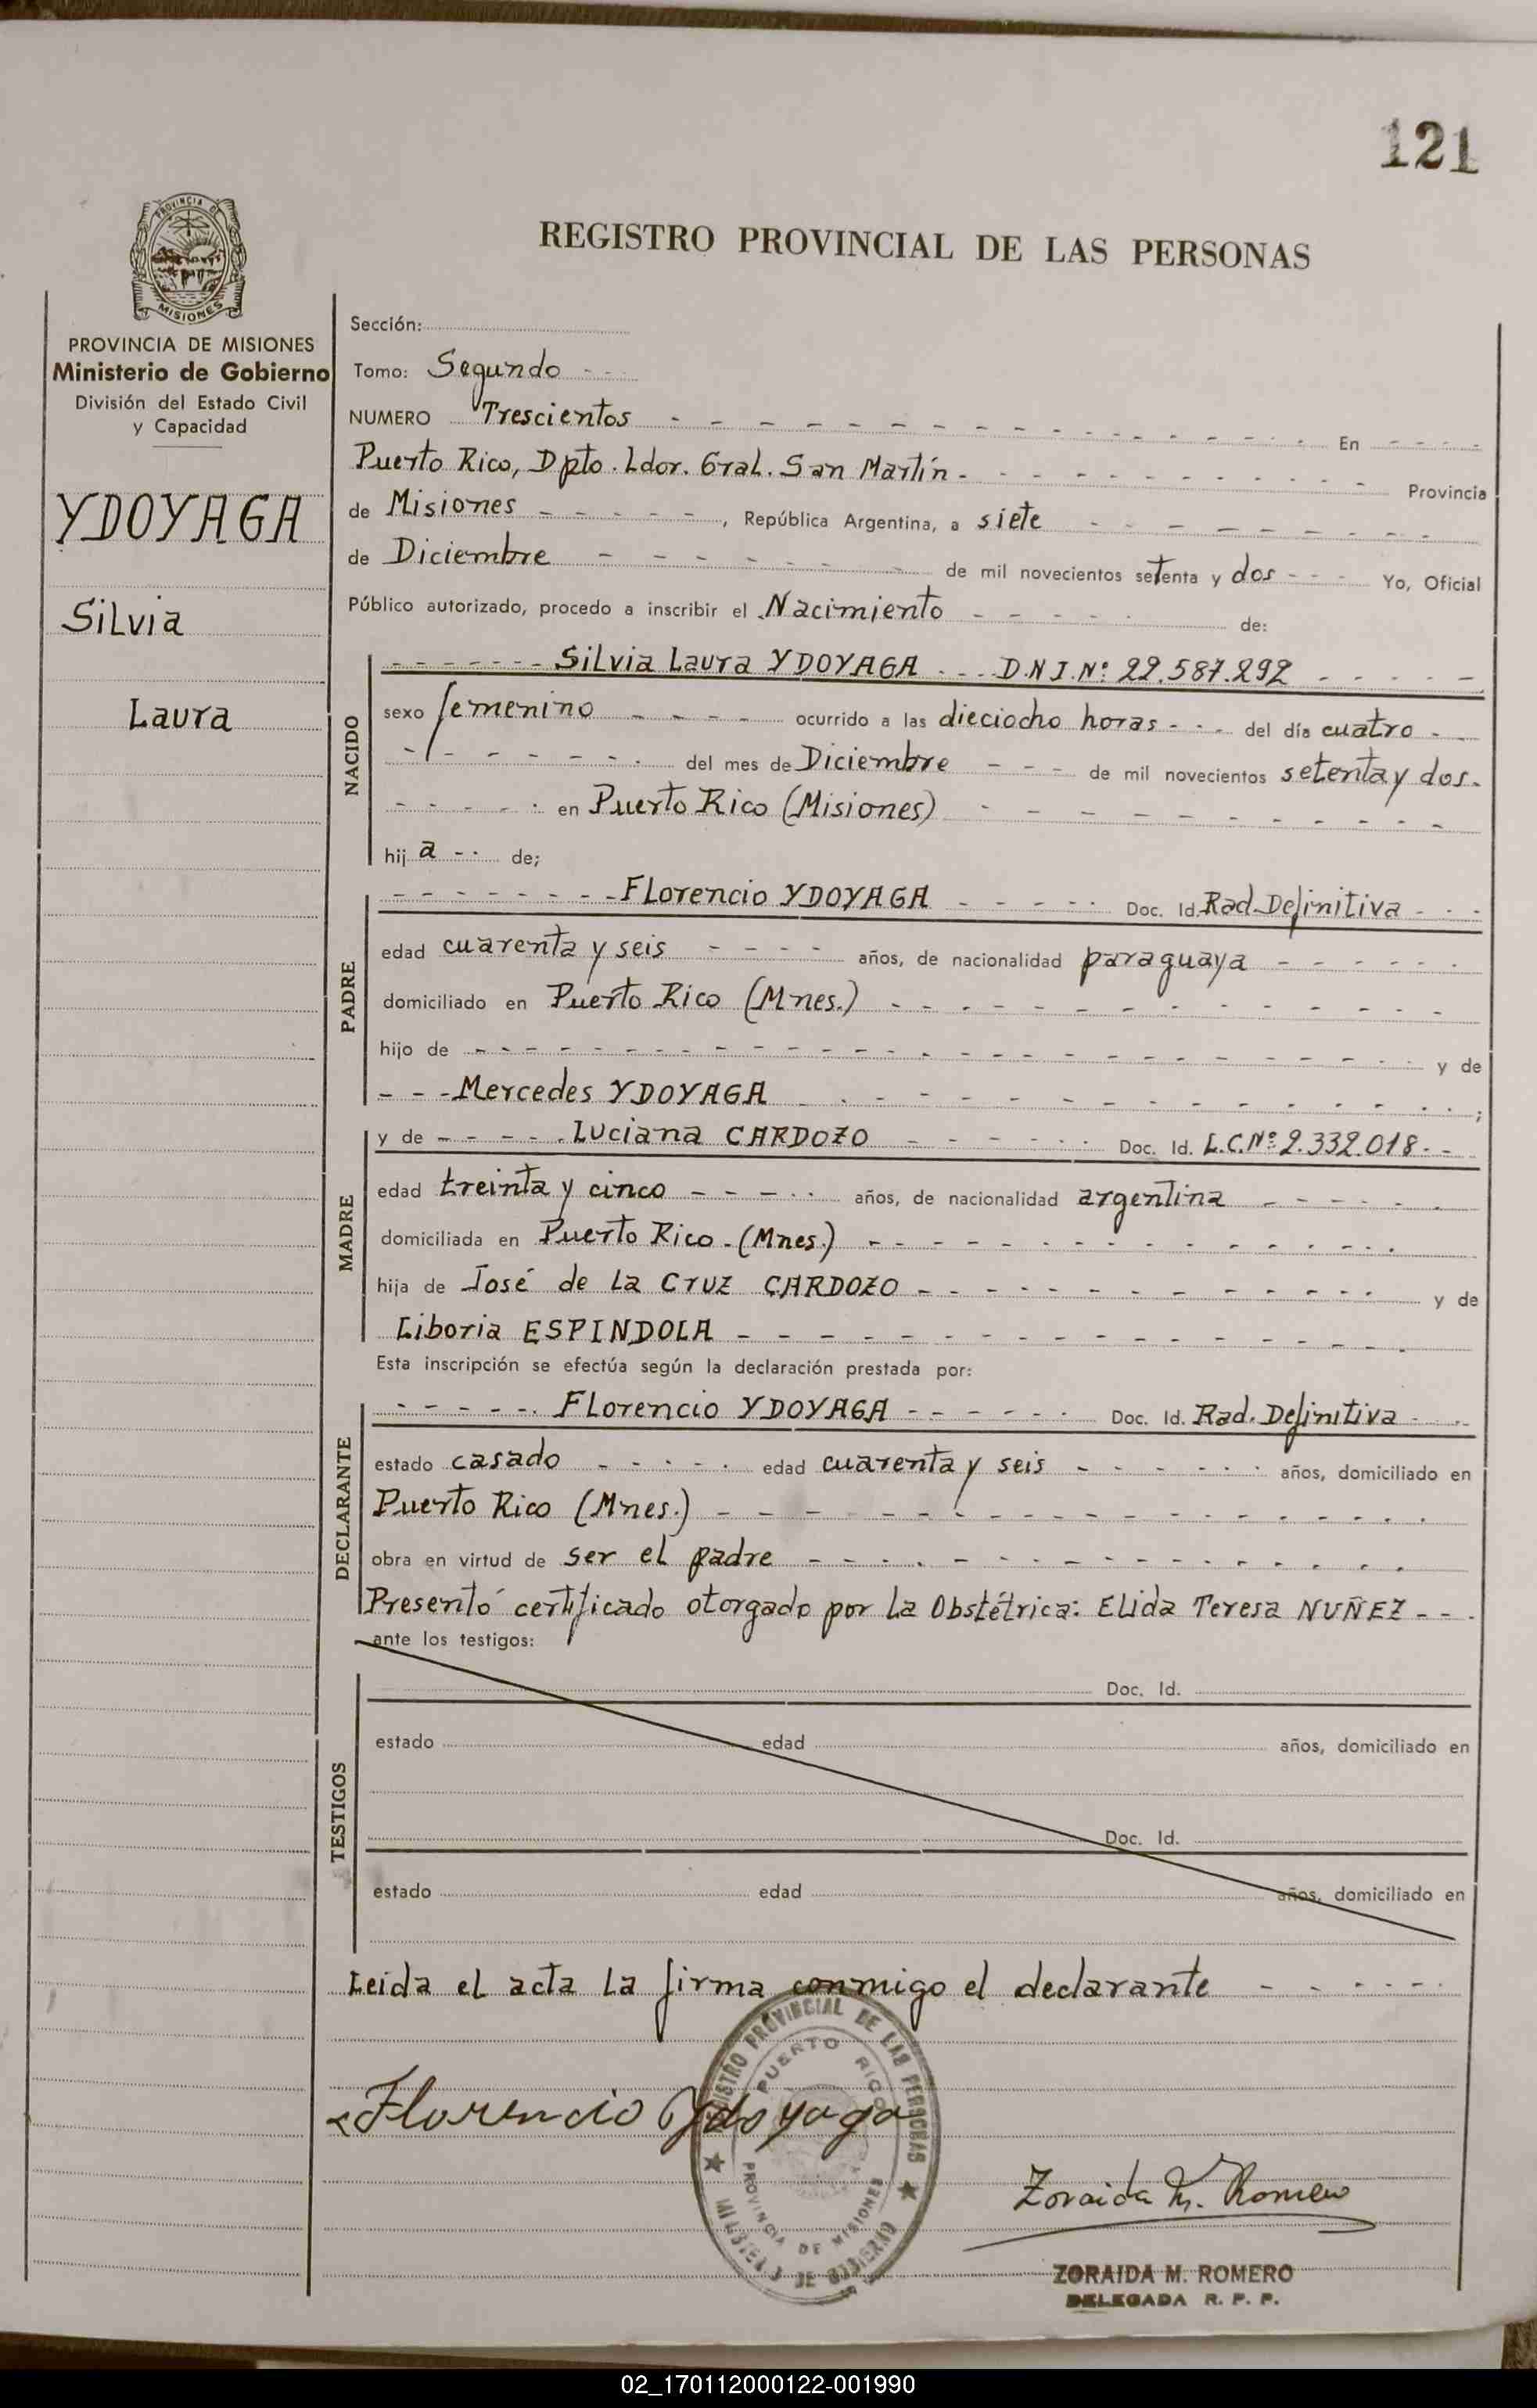 121
PROVINCIA DE
MISIONES
REGISTRO PROVINCIAL DE LAS PERSONAS
PROVINCIA DE MISIONES
Ministerio de Gobierno
División del Estado Civil
y Capacidad
YDOYAGA
Silvia
Laura
Sección:
Tomo: Segundo - - -
NUMERO Trescientos - - - - En - - - -
Puerto Rico, Dpto. Ldor. Gral. San Martín - - - - Provincia
de Misiones - - - -, República Argentina, a siete - - - -
de Diciembre - - - - de mil novecientos setenta y dos - - - Yo, Oficial
Público autorizado, procedo a inscribir el Nacimiento - - - - de:
NACIDO
- - - - Silvia Laura YDOYAGA - - - D.N.I. Nº: 22.587.292 - - - -
sexo femenino - - - - ocurrido a las dieciocho horas - - - del día cuatro - -
- - - - del mes de Diciembre - - - de mil novecientos setenta y dos.
- - - - en Puerto Rico (Misiones) - - - -
hij a - - de;
PADRE
- - - - Florencio YDOYAGA - - - - Doc. Id. Rad. Definitiva - - -
edad cuarenta y seis - - - - años, de nacionalidad paraguaya - - - -
domiciliado en Puerto Rico (Mnes.) - - - -
hijo de - - - - y de
- - - Mercedes YDOYAGA - - - - ;
MADRE
y de - - - - Luciana CARDOZO - - - - Doc. Id. L.C. Nº 2.332.018. - -
edad treinta y cinco - - - - años, de nacionalidad argentina - - - -
domiciliada en Puerto Rico - (Mnes.) - - - -
hija de José de la Cruz CARDOZO - - - - y de
Liboria ESPINDOLA - - - -
Esta inscripción se efectúa según la declaración prestada por:
DECLARANTE
- - - - Florencio YDOYAGA - - - - Doc. Id. Rad. Definitiva - -
estado casado - - - - edad cuarenta y seis - - - - años, domiciliado en
Puerto Rico (Mnes.) - - - -
obra en virtud de ser el padre - - - -
Presentó certificado otorgado por la Obstétrica: Elida Teresa NUÑEZ - - -
ante los testigos:
TESTIGOS
Doc. Id.
estado edad años, domiciliado en
Doc. Id.
estado edad años, domiciliado en
Leida el acta la firma conmigo el declarante - - - -
REGISTRO PROVINCIAL DE LAS PERSONAS
PUERTO RICO
PROVINCIA DE MISIONES
MINISTERIO DE GOBIERNO
Florencio Ydoyaga
Zoraida M. Romero
ZORAIDA M. ROMERO
DELEGADA R. P. P.
02_170112000122-001990